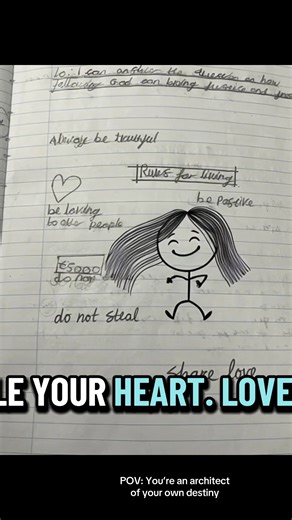 LO: I can answer the question on how
following God can bring justice and
Always be truthful
Rules for living
be Postive
be loving
to other people
£5000
do not
do not steal
share love
LE YOUR HEART. LOVE
POV: You're an architect
of your own destiny